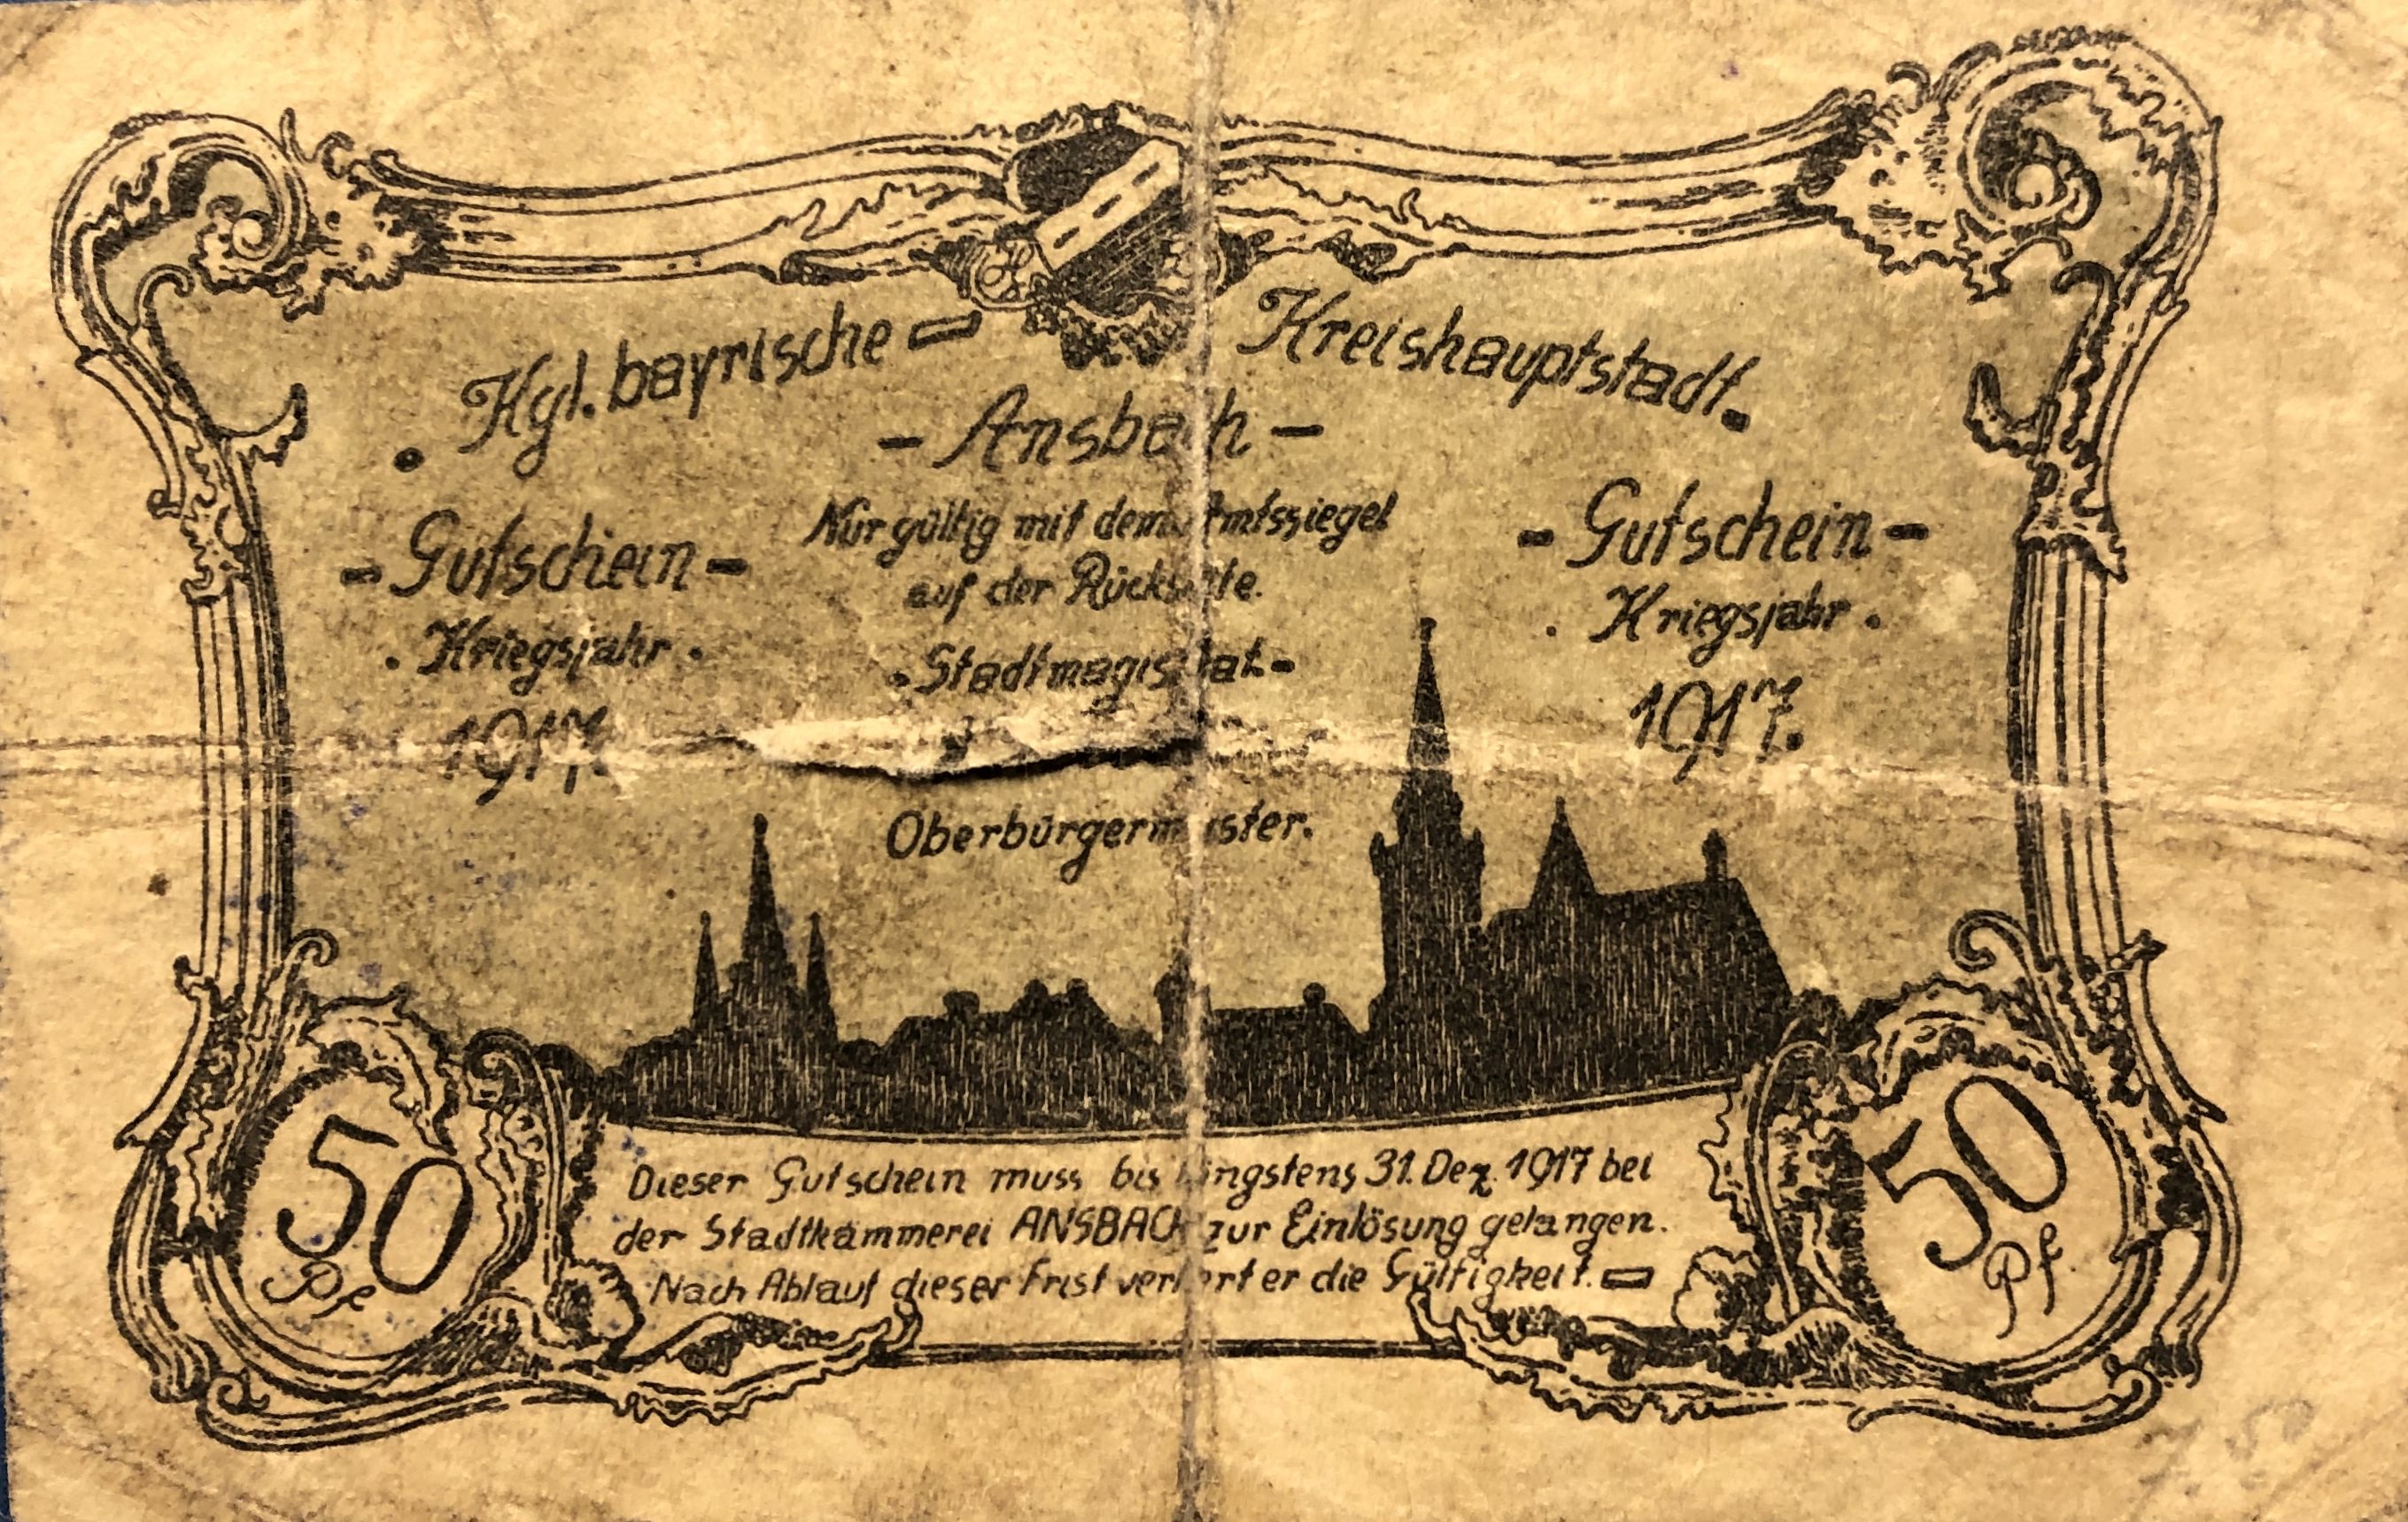 . Kgl. bayrische - Kreishauptstadt.
- Ansbach -
- Gutschein -
. Kriegsjahr .
1917
Nur gültig mit dem Amtssiegel
auf der Rückseite.
- Stadtmagistrat. -
Oberbürgermeister.
- Gutschein -
. Kriegsjahr .
1917.
50
Pf
Dieser Gutschein muss bis längstens 31. Dez. 1917 bei
der Stadtkämmerei ANSBACH zur Einlösung gelangen.
Nach Ablauf dieser Frist verliert er die Gültigkeit. -
50
Pf.